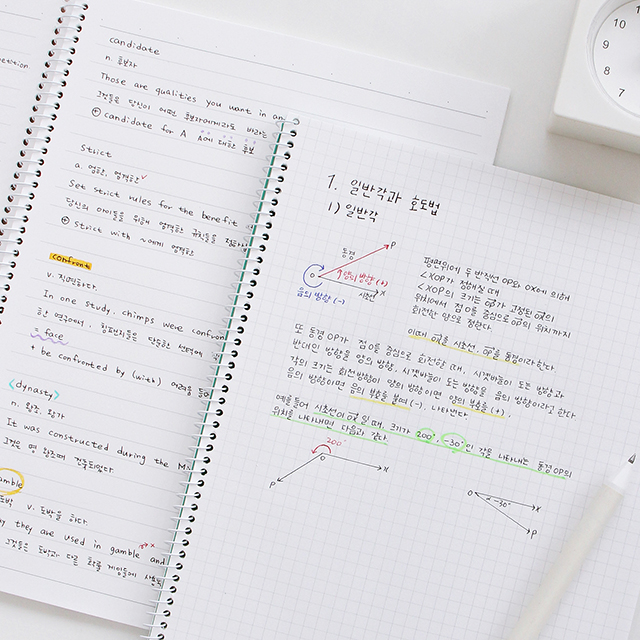 petition
candidate
n. 후보자
Those are qualities you want in an
그것들은 당신이 어떤 후보자에게라도 바라는
candidate for A A에 대한 후보
strict
a. 엄한, 엄격한
Set strict rules for the benefit
당신의 아이들을 위해 엄격한 규칙들을 적용하
strict with ~에게 엄격한
confront
v. 직면하다.
In one study, chimps were confron
한 연구에서, 침팬지들은 단순한 선택에
= face
+ be confronted by (with) 어려움 등이
<dynasty>
n. 왕조, 왕가
It was constructed during the Mi
그것은 명 왕조때 건축되었다.
gamble
도박 v. 도박을 하다.
y they are used in gamble and
그것들은 도박과 다른 확률 게임들에 사용
1. 일반각과 호도법
1) 일반각
동경
P
O
양의 방향 (+)
시초선
X
음의 방향 (-)
평면위에 두 반직선 OP와 OX에 의해
∠XOP가 정해질 때
∠XOP의 크기는 OP가 고정된 OX의
위치에서 점 O를 중심으로 OP의 위치까지
회전한 양으로 정한다.
이때 OX를 시초선, OP를 동경이라 한다.
또 동경 OP가 점 O를 중심으로 회전할 때, 시곗바늘이 도는 방향과
반대인 방향을 양의 방향, 시곗바늘이 도는 방향을 음의 방향이라고 한다.
각의 크기는 회전방향이 양의 방향이면 양의 부호(+),
음의 방향이면 음의 부호를 붙여(-), 나타낸다
예를들어 시초선이 OX일 때, 크기가 200° -30°인 각을 나타내는 동경 OP의
위치를 나타내면 다음과 같다.
200°
O
X
P
O
-30°
X
P
10
9
8
7